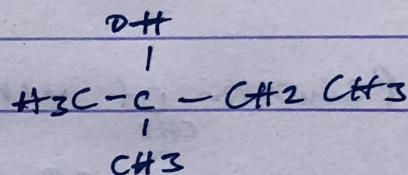 OH
|
H3C - C - CH2 CH3
|
CH3